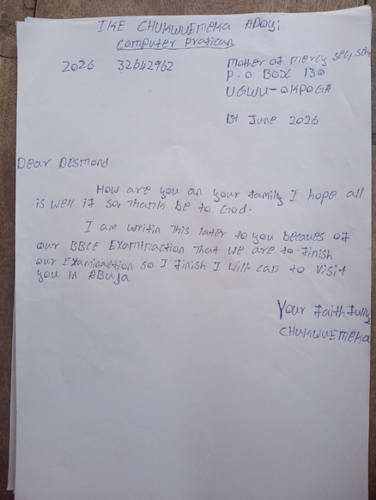 IKE CHUKWUEMEKA ADOYI
Computer Pratican
2026 32642962 Mother of mercy sec, sch
P.O BOX 130
UGWU-OKPOGA
1st June 2026
Dear Desmond
How are you an your family I hope all
is well if so, Thank be to God.
I am writin this later to you becaues of
our BBCE Examinaction that we are to finish
our Examinaction so I finish I will can to visit
you in ABUJA
Your faith fully
CHUKWUEMEKA